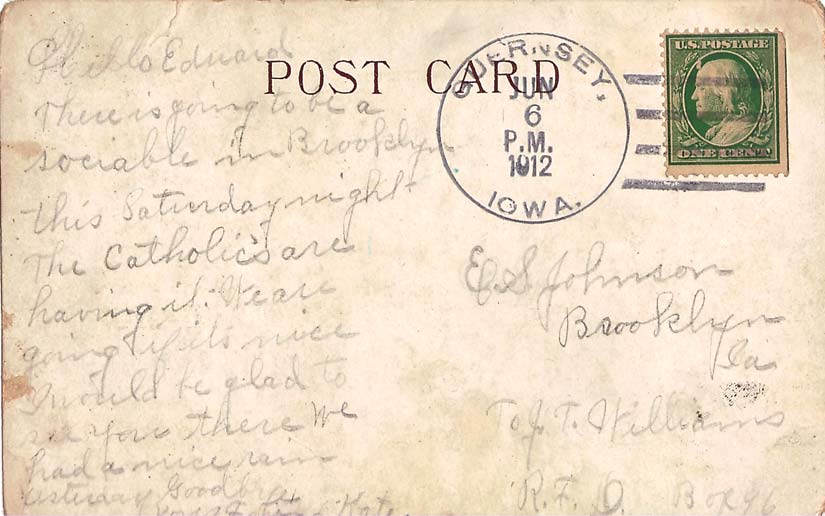 Hello Edward
There is going to be a
sociable in Brooklyn
this Saturday night
The Catholics are
having it. We are
going if its nice
I would be glad to
see you there We
had a nice rain
yesterday Goodbye
Kate
POST CARD
GUERNSEY,
JUN
6
P.M.
1912
IOWA.
U.S. POSTAGE
ONE CENT
E. S Johnson
Brooklyn
Ia
To J. T. Williams
R. F. D. Box 96